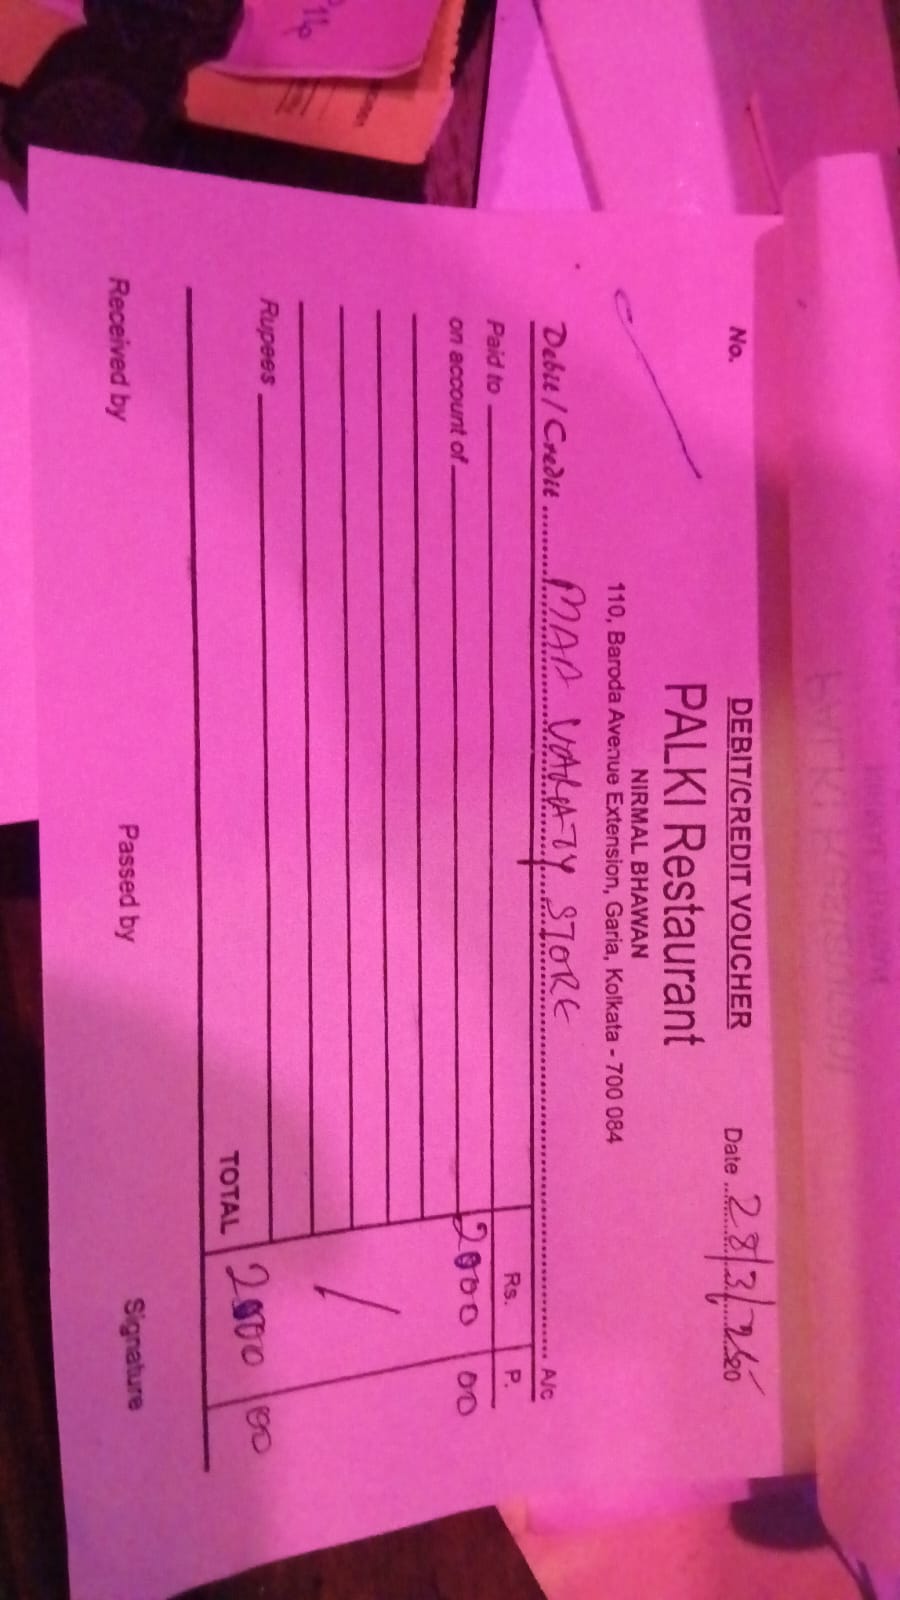 DEBIT/CREDIT VOUCHER
No. Date 28/3/25
PALKI Restaurant
NIRMAL BHAWAN
110, Baroda Avenue Extension, Garia, Kolkata - 700 084
Debit / Credit MAA VARATY STORE A/c
Rs. P.
Paid to
on account of 2000 00
Rupees
TOTAL 2000 00
Received by Passed by Signature